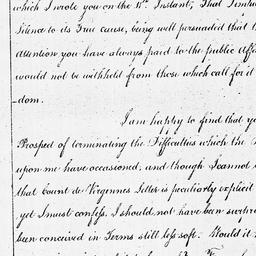 which I wrote you on the 11th Instant, That
Silence to its True cause, being well persuaded that
attention you have always paid to the public
would not be withheld from those which call for it
-dom.
I am happy to find that
Prospect of terminating the Difficulties which the
upon me have occasioned, and though I cannot
that Count de Vergennes Letter is peculiarly explicit
yet I must confess, I should not have been
been conceived in Terms still less soft. Would it